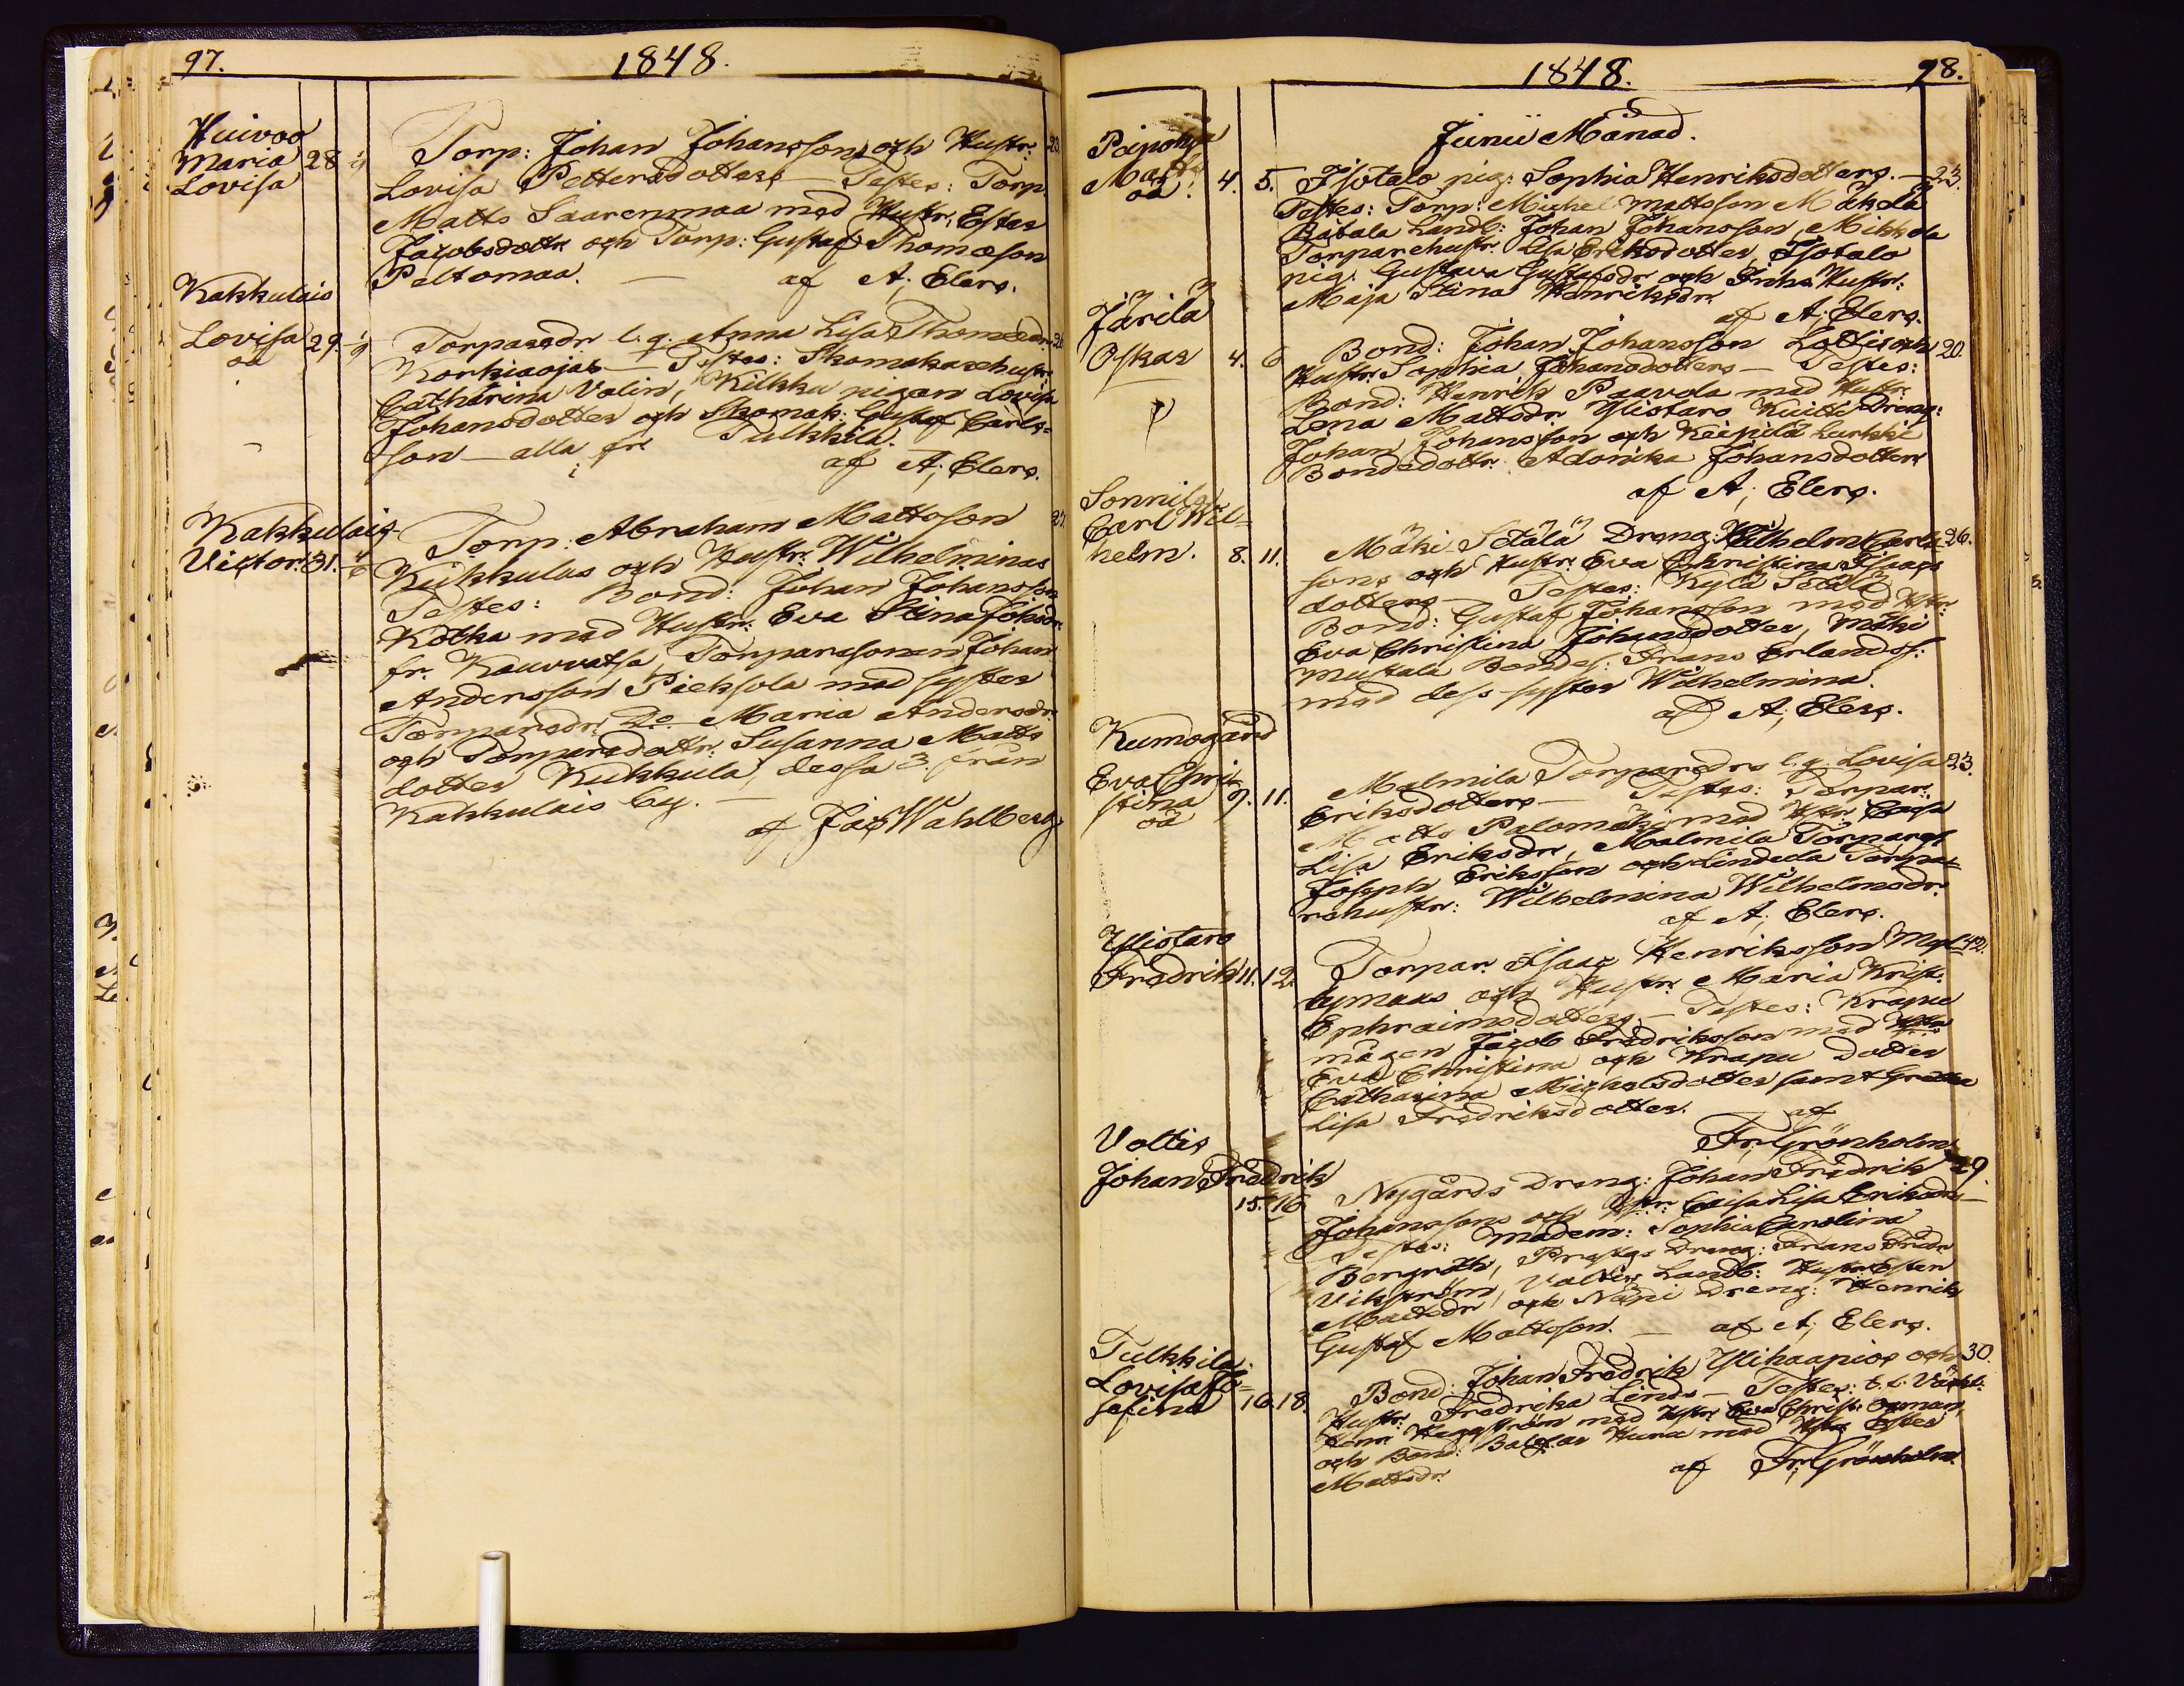 97.
1848.
Huivoo
Maria 28
Lovisa
Torp: Johan Johansson och Hustr: 23.
Lovisa Pettersdotters — Testes: Torp.
Matts Saarenmaa med Hustr: Ester
Jacobsdotr och Torp: Gustaf Thomasson
Peltomaa. — af A; Elers.
Kakkulais
Lovisa 29.
oä
Torparedr l. q. Anna Lisa Thomædr
Korkiaojas — Testes: Skomakarehustr:
Catharina Valin, Kilkku pigan Lovisa
Johansdotter och Skomak: Gustaf Carls=
son — alla fr. Tulkkila.
af A; Elers.
Kakkulais
Victor. 31.
Torp: Abraham Mattsson 27.
Kukkulas och Hustr: Wilhelminas
Testes: Bond: Johan Johansson
Kotka med Hustr: Eva Stina Johsdr
fr. Kauvatsa, Torparesonen Johan
Andersson Pieksola med syster
Torparedr: Do Maria Andersdr.
och Torparedottr: Susanna Matts
dotter Kukkula, dessa 3. från
Kakkulais by. —
af Jac Wahlberg
1848. 98.
Junii Månad.
Peipohja
Matts
oä. 4. 5.
Isotalo pig: Sophia Henriksdotters. — 23.
Testes: Torp: Michel Mattsson Mäkelä
Landb: Johan Johansson, Mikkola
Torparehustr: Lisa Eriksdotter, Isotalo
pig: Gustava Gustafsdr och Inhs Hustr:
Maja Stina Henriksdr.
af A; Elers.
Järilä
Oskar 4. 6
Bond: Johan Johansson Lottis och 20.
Hustr: Sophia Johansdotters — Testes:
Bond: Henrik Paavola med Hustr:
Lena Mattsdr. Ylistaro Kuitti Dreng:
Johan Johansson och Keipilä Lurkki
Bondedottr: Adorika Johansdotter
af A; Elers.
Sonnila
Carl Wil=
helm. 8. 11.
Mäki Setälä Dreng: Wilhelm Carls 26.
sons och Hustr: Eva Christina Isaacs
dotters — Testes: Kylä Setälä
Bond: Gustaf Johansson med Hstr:
Eva Christina Johansdotter, Mäki
Mustala Bondes: Frans Erlandss:
med dess syster Wilhelmina.
af A; Elers.
Kumogård
Eva Chri=
stina 9. 11.
oä
Malmila Torparedrs l. q. Lovisa 23.
Eriksdotters — Testes: Torpar:
Matts Palomäki med Hstr: Caisa
Lisa Eriksdr, Malmila Torpares
Joseph Eriksson och Lindeda Torpa=
rehustr: Wilhelmina Wilhelmsdr.
af A; Elers.
Ylistaro
Fredrik 11. 12.
Torpar: Isaac Henriksson 42.
och Hustr: Maria Krist:
Ephraimsdotters — Testes: Krapu
mågen Jacob Fredriksson med Hstr
Eva Christina och Krapu Dotter
Catharina Michelsdotter samt Greta
Lisa Fredriksdotter. — af
Fr; Grönholm
Voltis
Johan Fredrik
15. 16
Nygårds Dreng: Johan Fredrik 29.
Johanssons och Hstr: Caisa Lisa Eriksdrs —
Testes: Madem: Sophia Carolina
Bergroth, Prestgs Dreng: Frans Fredr
Vikström, Voltis Landb: Hustr Ester
Mattsdr och Näpi Dreng: Henrik
Gustaf Mattsson. — af A; Elers.
Tulkkila.
Lovisa Jo=
sefina 16. 18.
Bond: Johan Fredrik Ylihaapios och 30.
Hustr: Fredrika Linds — Testes:
Henr Heggström med Hstr Eva Christ:
och Bond: Baltsar Huru med Hstr Ester
Mattsdr.
af Fr; Grönholm.